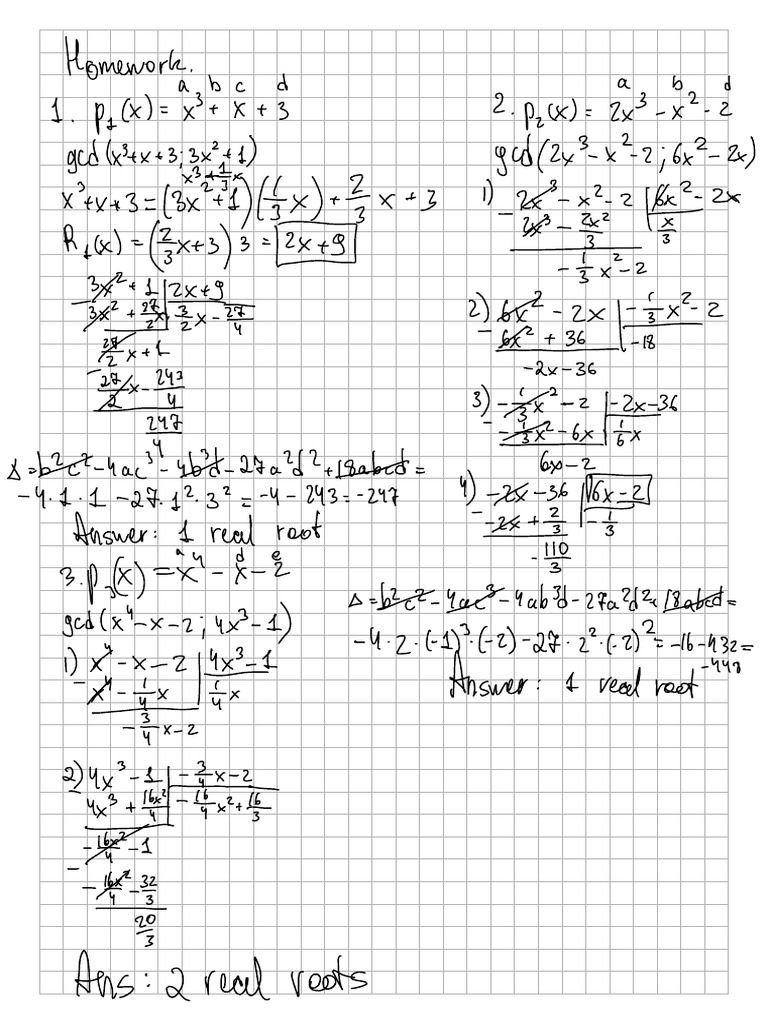 Homework.
a b c d
1. p₁(x) = x³ + x + 3
gcd(x³+x+3; 3x²+1)
x³+1/3x
x³+x+3 = (3x²+1)(1/3x) + 2/3x + 3
R₁(x) = (2/3x+3)3 = 2x+9
3x² + 1 | 2x+9
3x² + 27/2x | 3/2x - 27/4
- 27/2x + 1
- 27/2x - 243/4
247/4
Δ = b²c² - 4ac³ - 4b³d - 27a²d² + 18abcd =
-4·1·1 - 27·1²·3² = -4 - 243 = -247
Answer: 1 real root
a b d
2. p₂(x) = 2x³ - x² - 2
gcd(2x³ - x² - 2; 6x² - 2x)
1) 2x³ - x² - 2 | 6x² - 2x
- 2x³ - 2x²/3 | x/3
- 1/3x² - 2
2) 6x² - 2x | - 1/3x² - 2
- 6x² + 36 | -18
-2x - 36
3) - 1/3x² - 2 | -2x - 36
- - 1/3x² - 6x | 1/6x
6x - 2
4) -2x - 36 | 6x - 2
- -2x + 2/3 | - 1/3
- 110/3
Δ = b²c² - 4ac³ - 4ab³d - 27a²d² + 18abcd =
-4·2·(-1)³·(-2) - 27·2²·(-2)² = -16 - 432 =
-448
Answer: 1 real root
a d e
3. p₃(x) = x⁴ - x - 2
gcd(x⁴ - x - 2; 4x³ - 1)
1) x⁴ - x - 2 | 4x³ - 1
- x⁴ - 1/4x | 1/4x
- 3/4x - 2
2) 4x³ - 1 | - 3/4x - 2
- 4x³ + 16x²/4 | - 16/4x² + 16/3
- 16x²/4 - 1
- - 16x²/4 - 32/3
20/3
Ans: 2 real roots